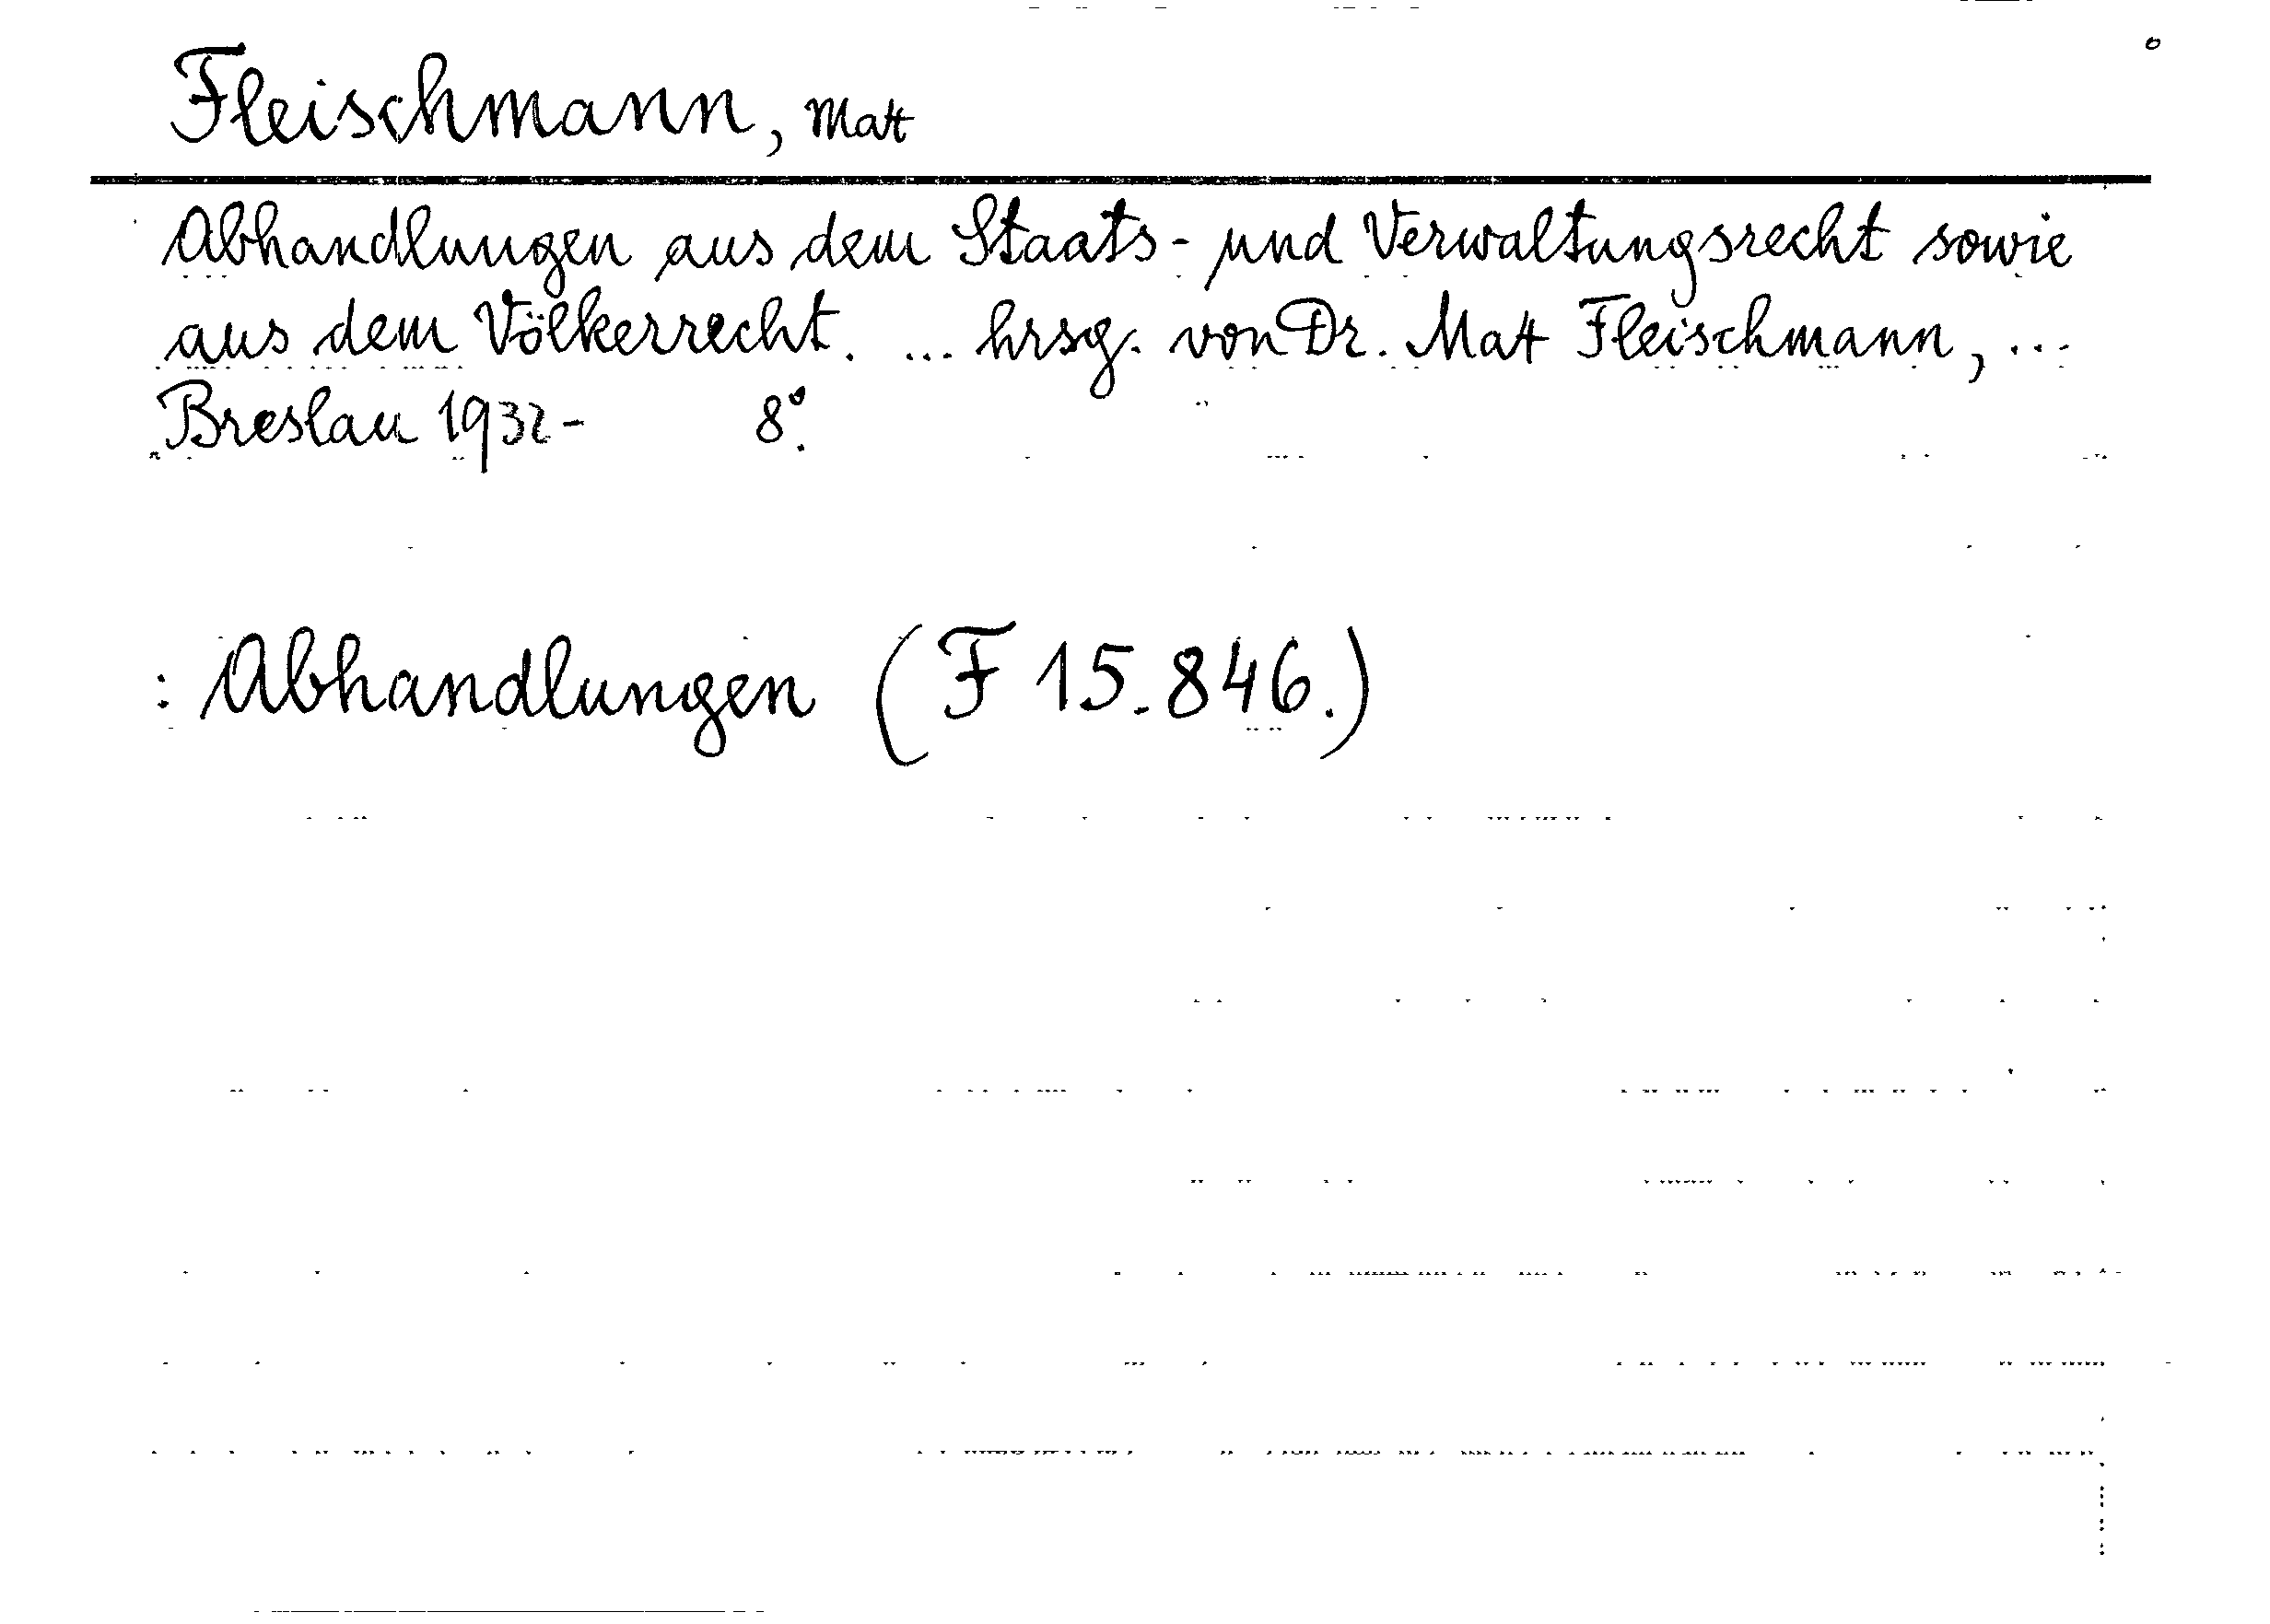 Fleischmann, Matt
Abhandlungen aus dem Staats- und Verwaltungsrecht sowie
aus dem Völkerrecht. ... hrsg. von Dr. Matt Fleischmann, ...
Breslau 1932- 8°.
: Abhandlungen (F 15.846.)